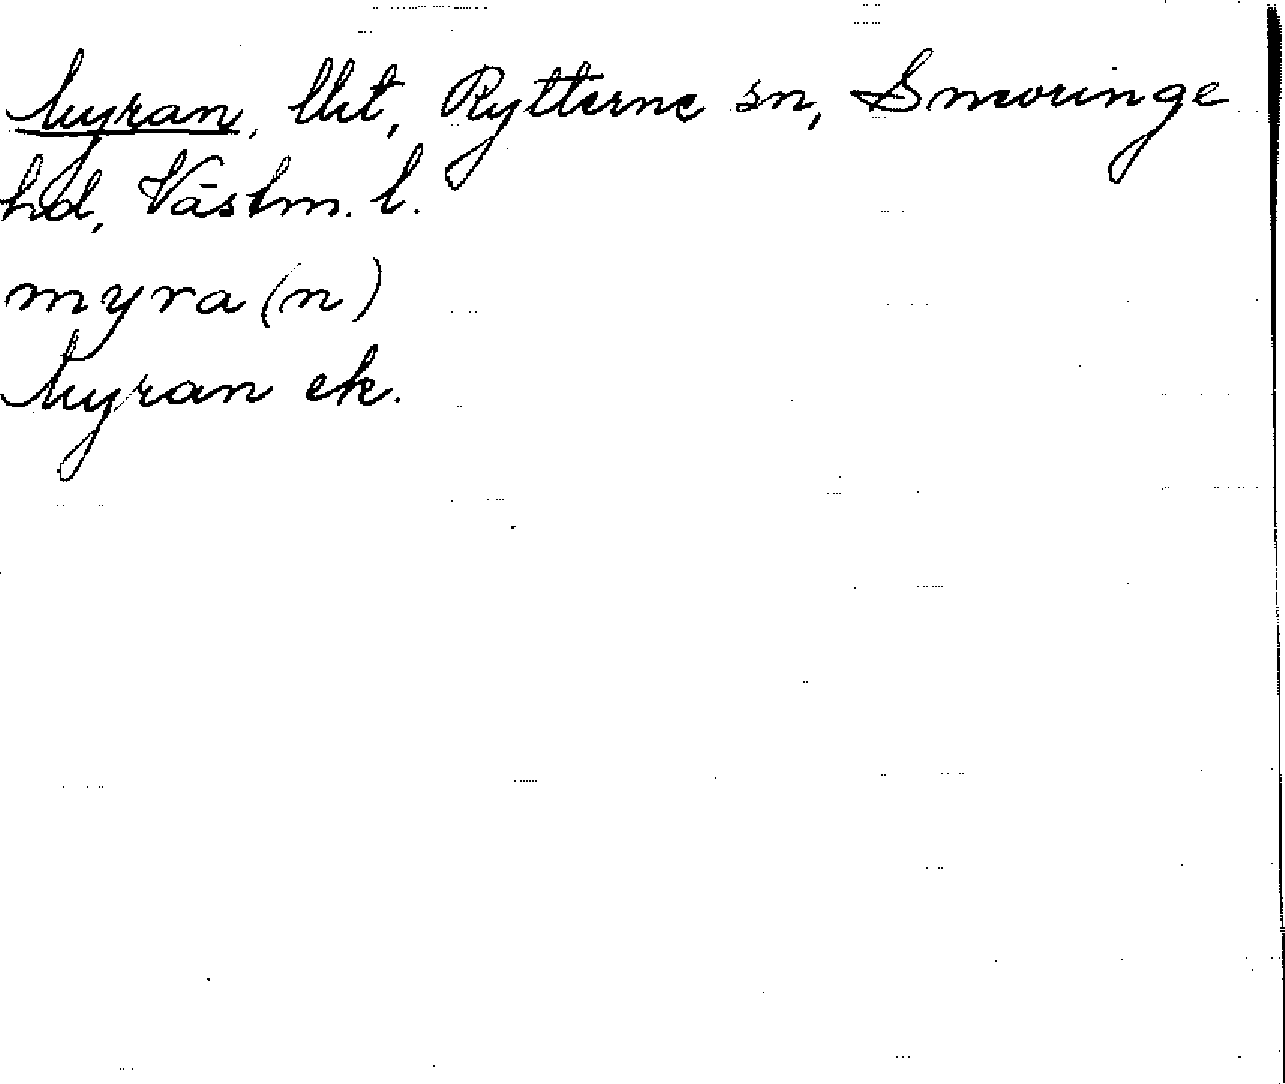 Myran, lht, Rytterne sn, Snevringe
hd, Västm. l.
myra(n)
Myran ek.